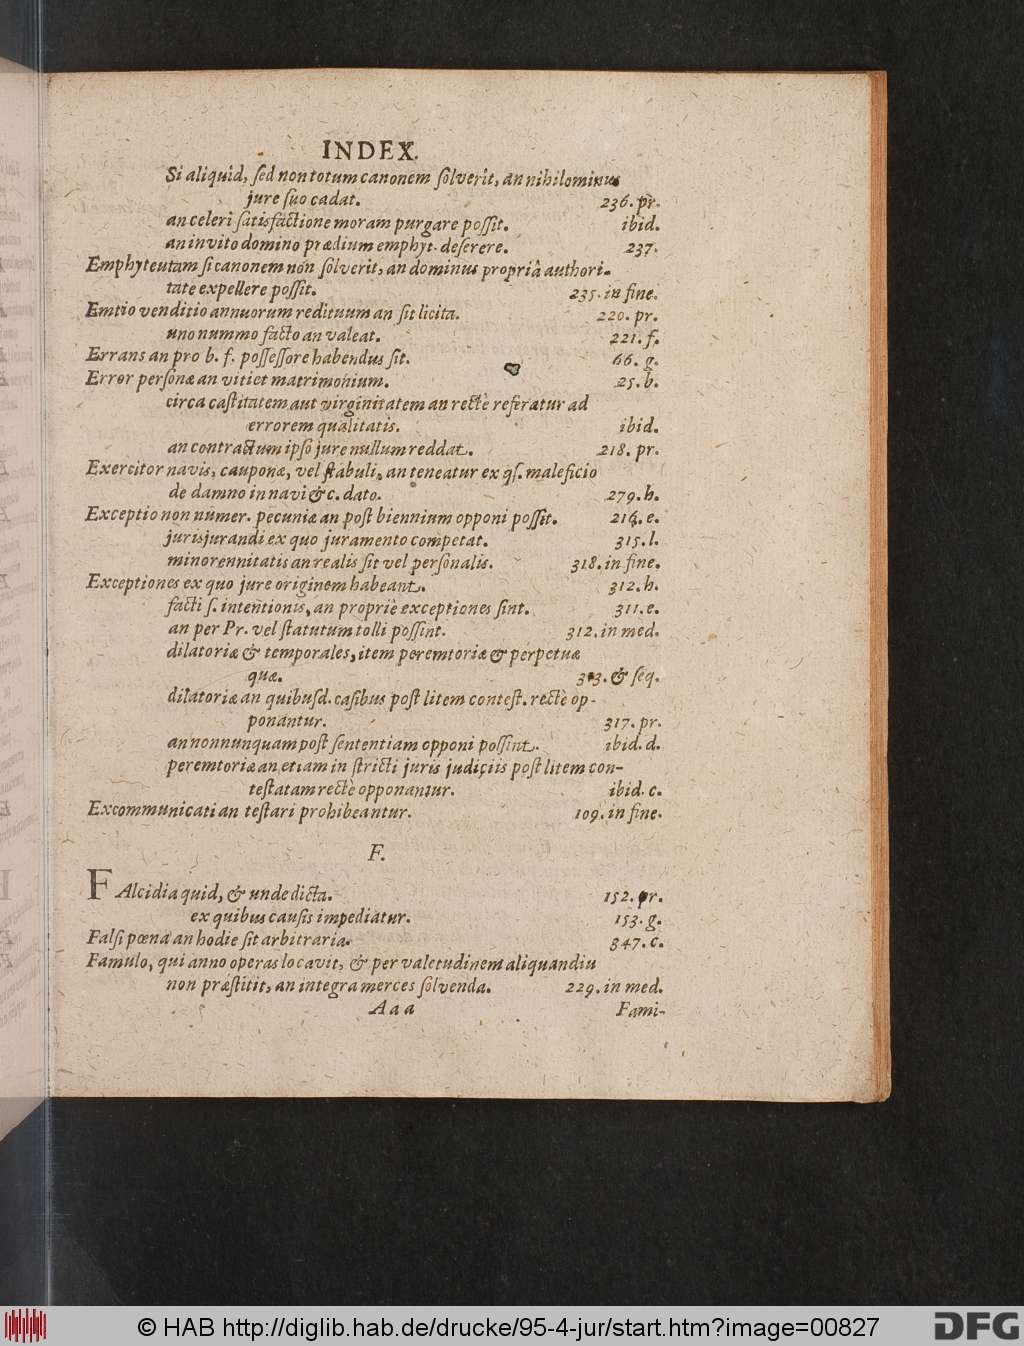 INDEX.
Si aliquid, sed non totum canonem solverit, an nihilominus
jure suo cadat. 236. pr.
an celeri satisfactione moram purgare possit. ibid.
an invito domino prædium emphyt. deserere. 237.
Emphyteutam si canonem non solverit, an dominus propriâ authori-
tate expellere possit. 235. in fine.
Emtio venditio annuorum redituum an sit licita. 220. pr.
uno nummo facto an valeat. 221. f.
Errans an pro b. f. possessore habendus sit. 66. g.
Error personæ an vitiet matrimonium. 25. b.
circa castitatem aut virginitatem an rectè referatur ad
errorem qualitatis. ibid.
an contractum ipso jure nullum reddat. 218. pr.
Exercitor navis, cauponæ, vel stabuli, an teneatur ex qs. maleficio
de damno in navi &c. dato. 279. h.
Exceptio non numer. pecuniæ an post biennium opponi possit. 216. e.
jurisjurandi ex quo juramento competat. 315. l.
minorennitatis an realis sit vel personalis. 318. in fine.
Exceptiones ex quo jure originem habeant. 312. h.
facti s. intentionis, an propriè exceptiones sint. 311. e.
an per Pr. vel statutum tolli possint. 312. in med.
dilatoriæ & temporales, item peremtoriæ & perpetuæ
quæ. 313. & seq.
dilatoriæ an quibusd. casibus post litem contest. rectè op-
ponantur. 317. pr.
an nonnunquam post sententiam opponi possint. ibid. d.
peremtoriæ an etiam in stricti juris judiciis post litem con-
testatam rectè opponantur. ibid. c.
Excommunicati an testari prohibeantur. 109. in fine.
F.
FAlcidia quid, & unde dicta. 152. pr.
ex quibus causis impediatur. 153. g.
Falsi pœna an hodie sit arbitraria. 347. c.
Famulo, qui anno operas locavit, & per valetudinem aliquandiu
non præstitit, an integra merces solvenda. 229. in med.
Aaa Fami-
© HAB http://diglib.hab.de/drucke/95-4-jur/start.htm?image=00827
DFG